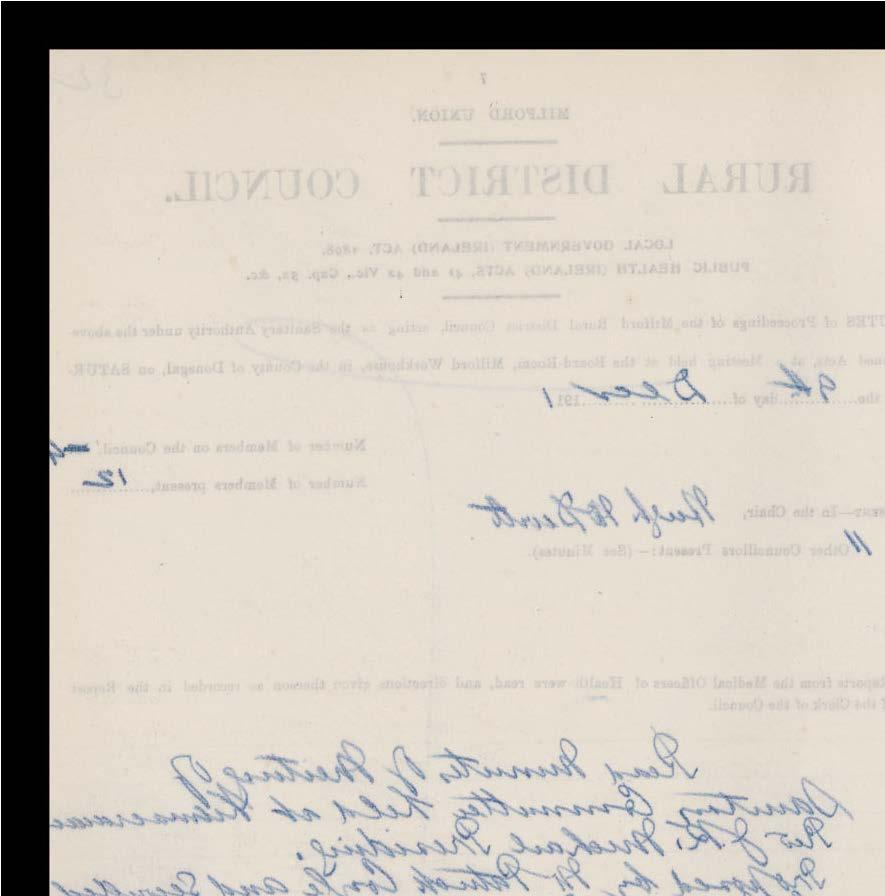 7
MILFORD UNION.
RURAL DISTRICT COUNCIL.
LOCAL GOVERNMENT (IRELAND) ACT, 1898.
PUBLIC HEALTH (IRELAND) ACTS, 41 and 42 Vic., Cap. 52, &c.
UTES of Proceedings of the Milford Rural District Council, acting as the Sanitary Authority under the above
Acts, at Meeting held at the Board-Room, Milford Workhouse, in the County of Donegal, on SATUR-
the 9th day of Decr 1911
Number of Members on the Council,
Number of Members present, 12
In the Chair, Hugh
11 Other Councillors Present:—(See Minutes).
Reports from the Medical Officers of Health were read, and directions given thereon as recorded in the Report
of the Clerk of the Council.
Read minutes of Meeting of
Sanitary Committee held at
Rev J. K. Presiding.
Proposed by Patrick and Seconded